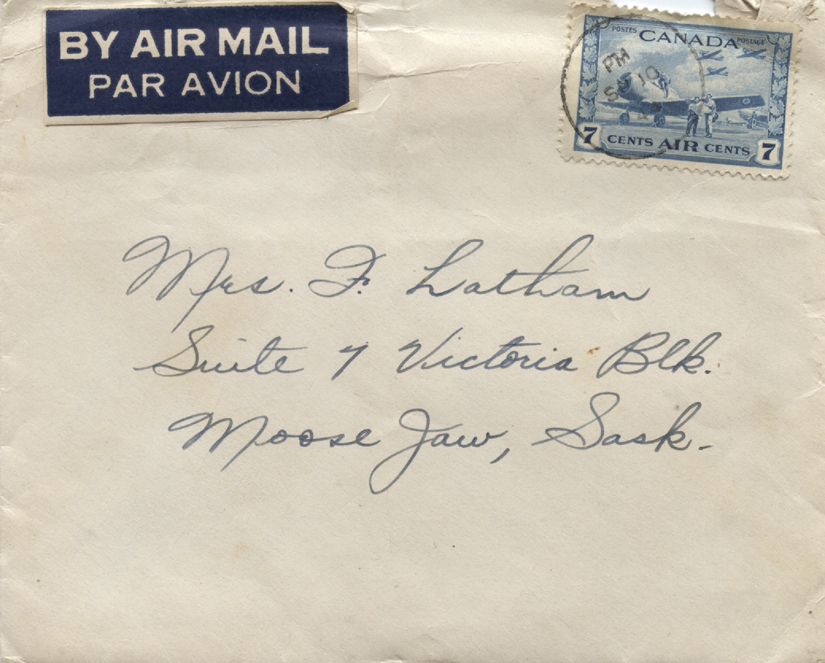 BY AIR MAIL
PAR AVION
POSTES CANADA POSTAGE
PM
10
7 CENTS AIR CENTS 7
Mrs. F. Latham
Suite 7 Victoria Blk.
Moose Jaw, Sask.